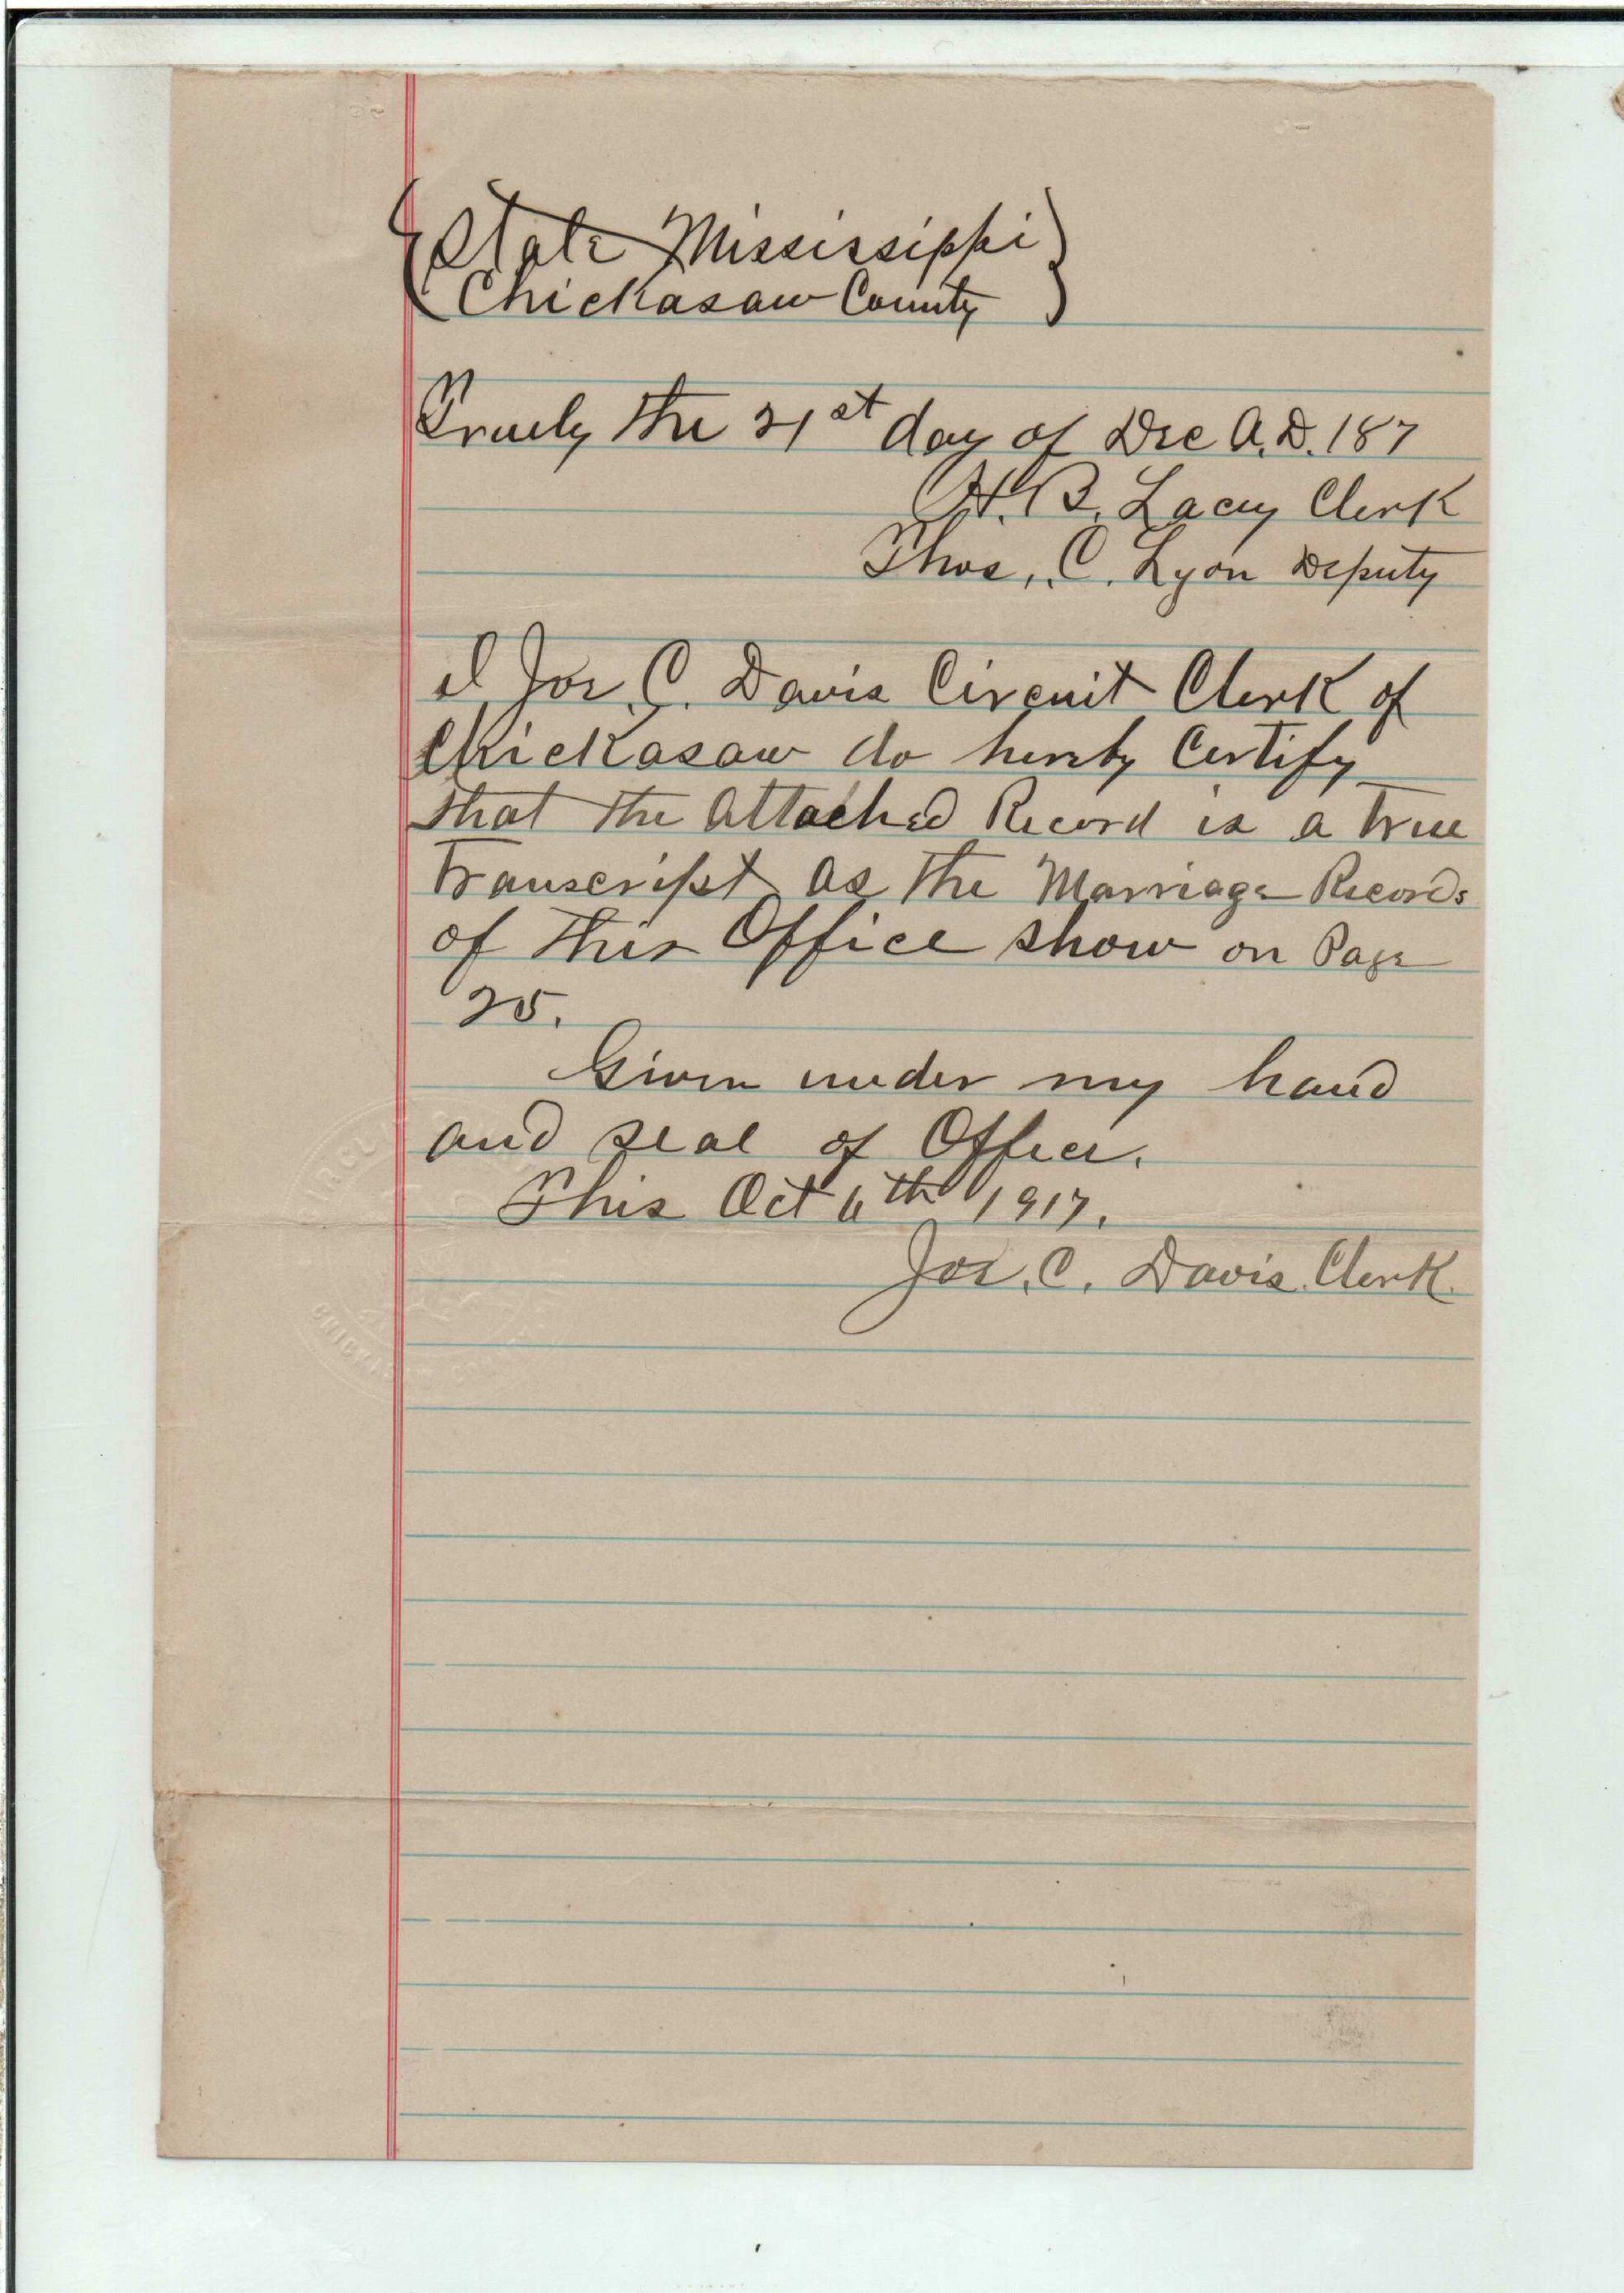 State Mississippi
Chickasaw County
Truely the 21st day of Dec A.D. 187
H. B. Lacey Clerk
Thos, C. Lyon Deputy
I Joe, C. Davis Circuit Clerk of
Chickasaw do hereby Certify
that the attached Record is a true
Transcript as the Marriage Records
of this Office show on Page
25.
Given under my hand
and seal of Office.
This Oct 6th 1917.
Joe, C. Davis. Clerk.